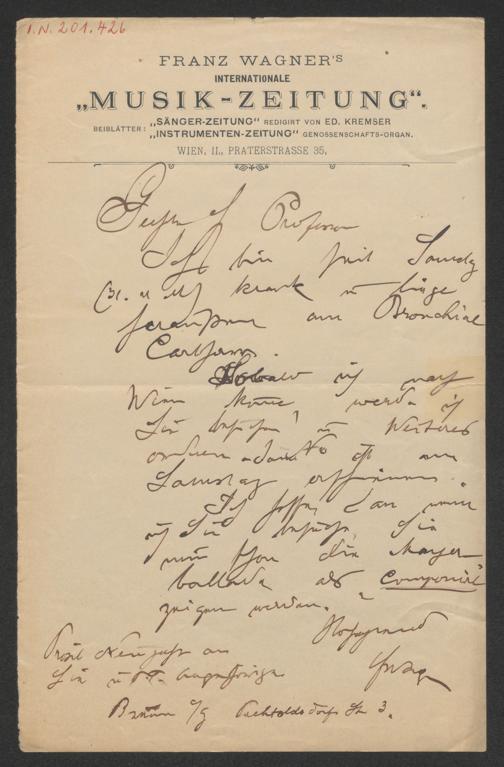 I.N. 201.426
FRANZ WAGNER'S
INTERNATIONALE
„MUSIK-ZEITUNG“.
BEIBLÄTTER: „SÄNGER-ZEITUNG“ REDIGIRT VON ED. KREMSER
„INSTRUMENTEN-ZEITUNG“ GENOSSENSCHAFTS-ORGAN.
WIEN, II., PRATERSTRASSE 35,
Professor
Ich bin seit Samstag
krank u liege
am Bronchial
Catharr.
Sobald ich nach
Wien komme, werde ich
Sie besuchen u Weiteres
am
Samstag erscheinen.
Ich hoffe, dass wenn
ich Sie besuche, Sie
mir schon die Mayer
ballade als "Componirt"
zeigen werden.
Hochachtend
Prosit Neujahr an
Sie u
Wagner
Brunn a/g 3.